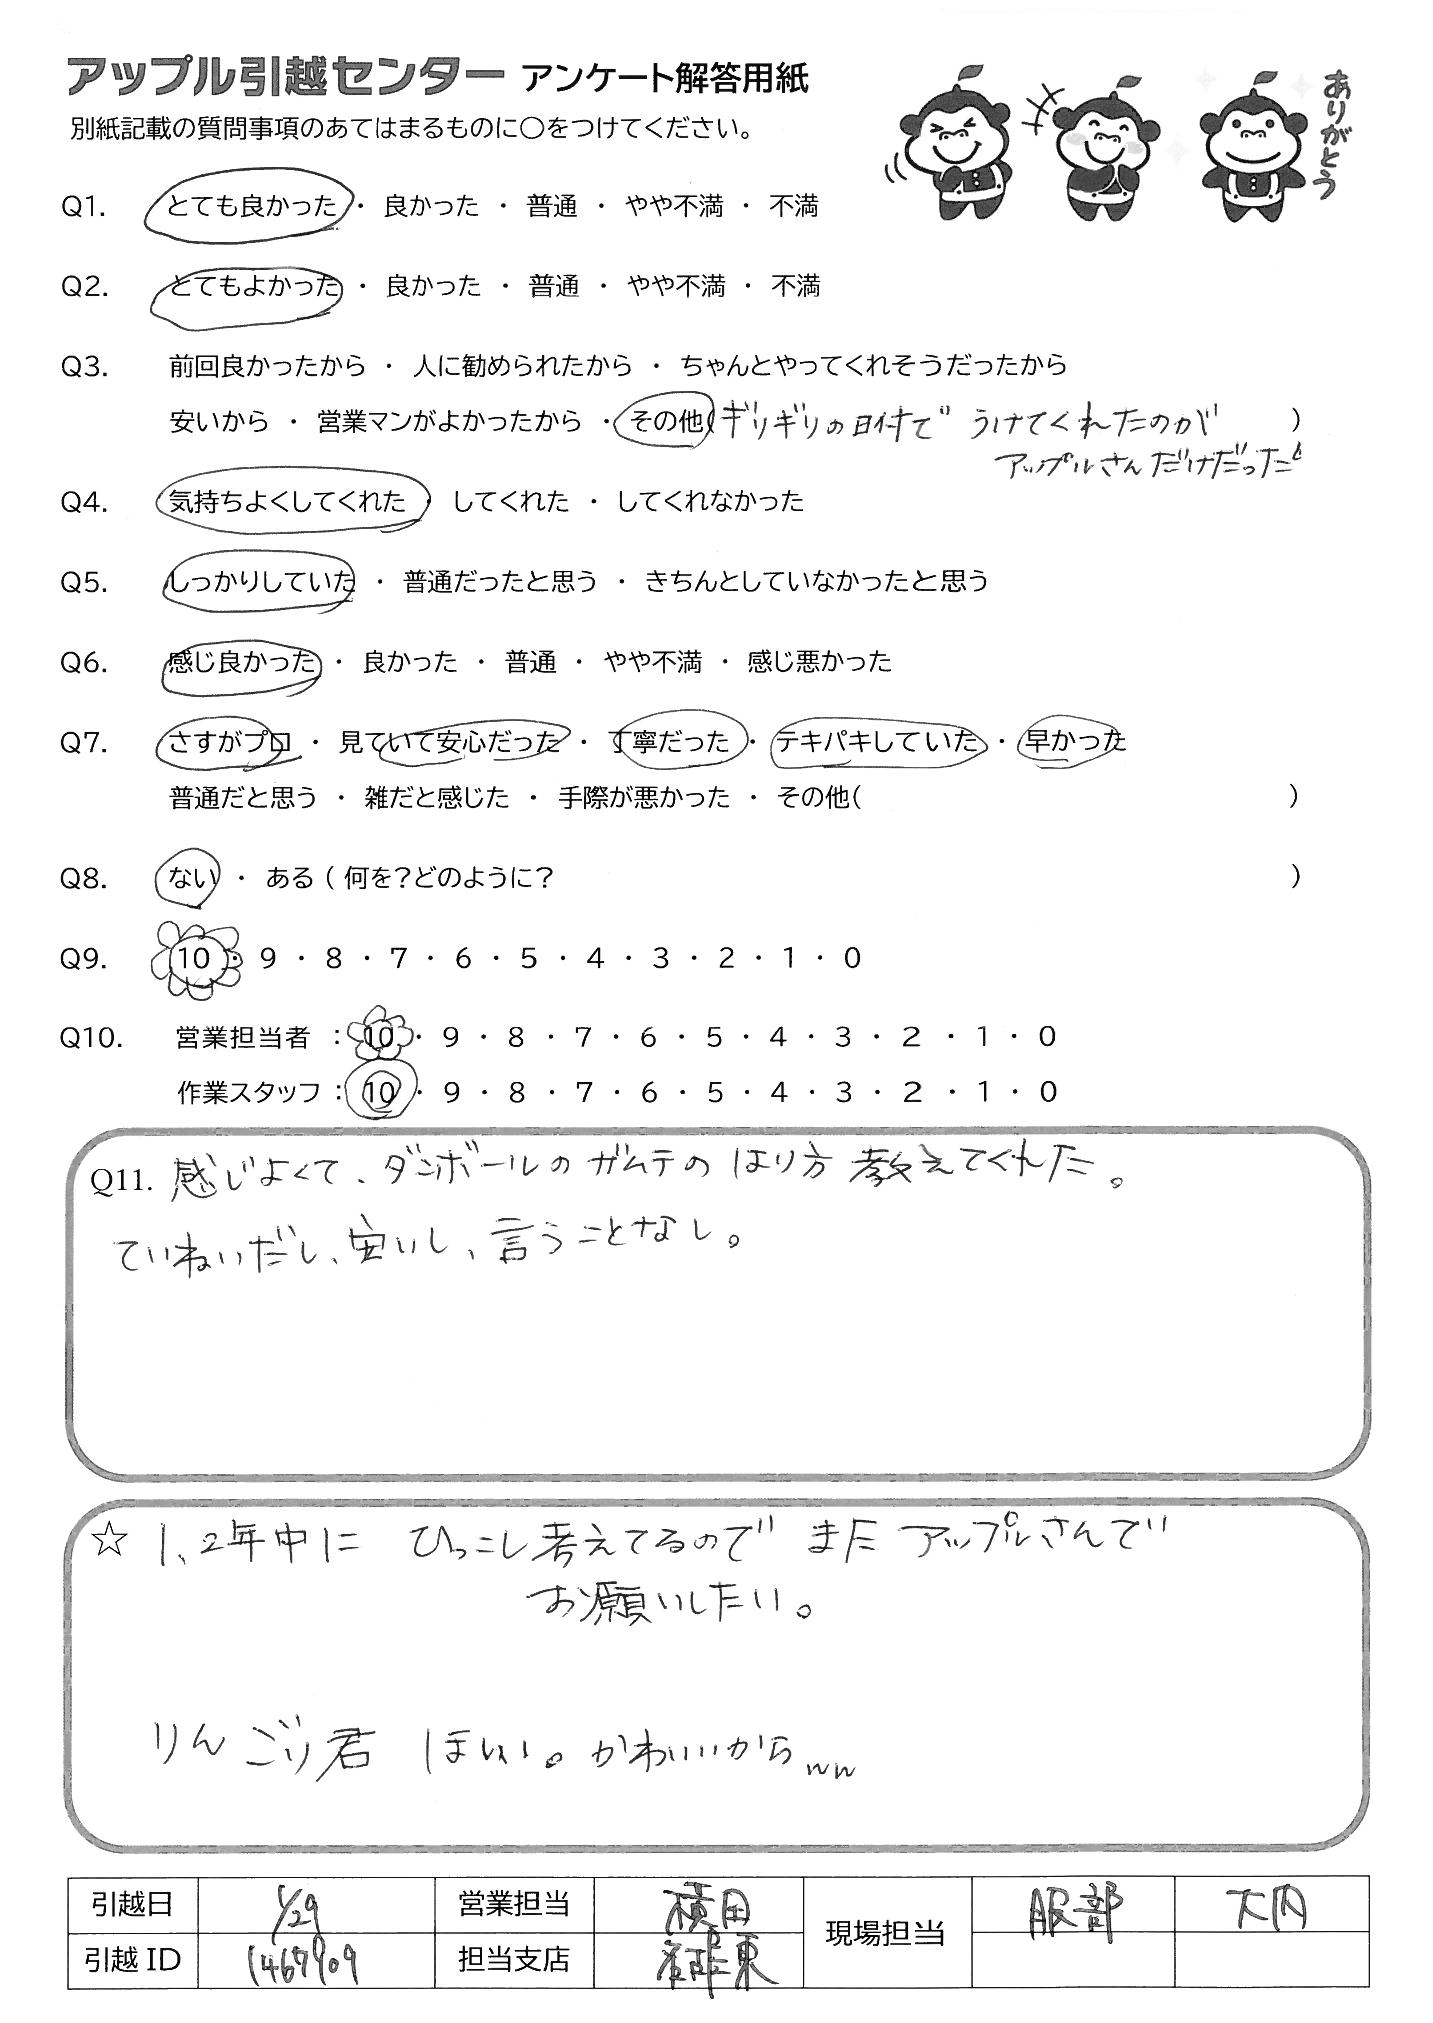 アップル引越センター アンケート解答用紙
別紙記載の質問事項のあてはまるものに○をつけてください。
ありがとう
Q1. とても良かった ・ 良かった ・ 普通 ・ やや不満 ・ 不満
Q2. とてもよかった ・ 良かった ・ 普通 ・ やや不満 ・ 不満
Q3. 前回良かったから ・ 人に勧められたから ・ ちゃんとやってくれそうだったから
安いから ・ 営業マンがよかったから ・ その他(ギリギリの日付で うけてくれたのが )
アップルさんだけだった
Q4. 気持ちよくしてくれた ・ してくれた ・ してくれなかった
Q5. しっかりしていた ・ 普通だったと思う ・ きちんとしていなかったと思う
Q6. 感じ良かった ・ 良かった ・ 普通 ・ やや不満 ・ 感じ悪かった
Q7. さすがプロ ・ 見ていて安心だった ・ 丁寧だった ・ テキパキしていた ・ 早かった
普通だと思う ・ 雑だと感じた ・ 手際が悪かった ・ その他( )
Q8. ない ・ ある ( 何を?どのように? )
Q9. 10 ・ 9 ・ 8 ・ 7 ・ 6 ・ 5 ・ 4 ・ 3 ・ 2 ・ 1 ・ 0
Q10. 営業担当者 : 10 ・ 9 ・ 8 ・ 7 ・ 6 ・ 5 ・ 4 ・ 3 ・ 2 ・ 1 ・ 0
作業スタッフ : 10 ・ 9 ・ 8 ・ 7 ・ 6 ・ 5 ・ 4 ・ 3 ・ 2 ・ 1 ・ 0
Q11. 感じよくて、ダンボールのガムテの はり方 教えてくれた。
ていねいだし、安いし、言うことなし。
☆ 1、2年中に ひっこし考えてるので また アップルさんで
お願いしたい。
りんごり君 ほしい。かわいいからww
引越日 1/29 営業担当 横田 現場担当 服部 大内
引越ID 1467909 担当支店